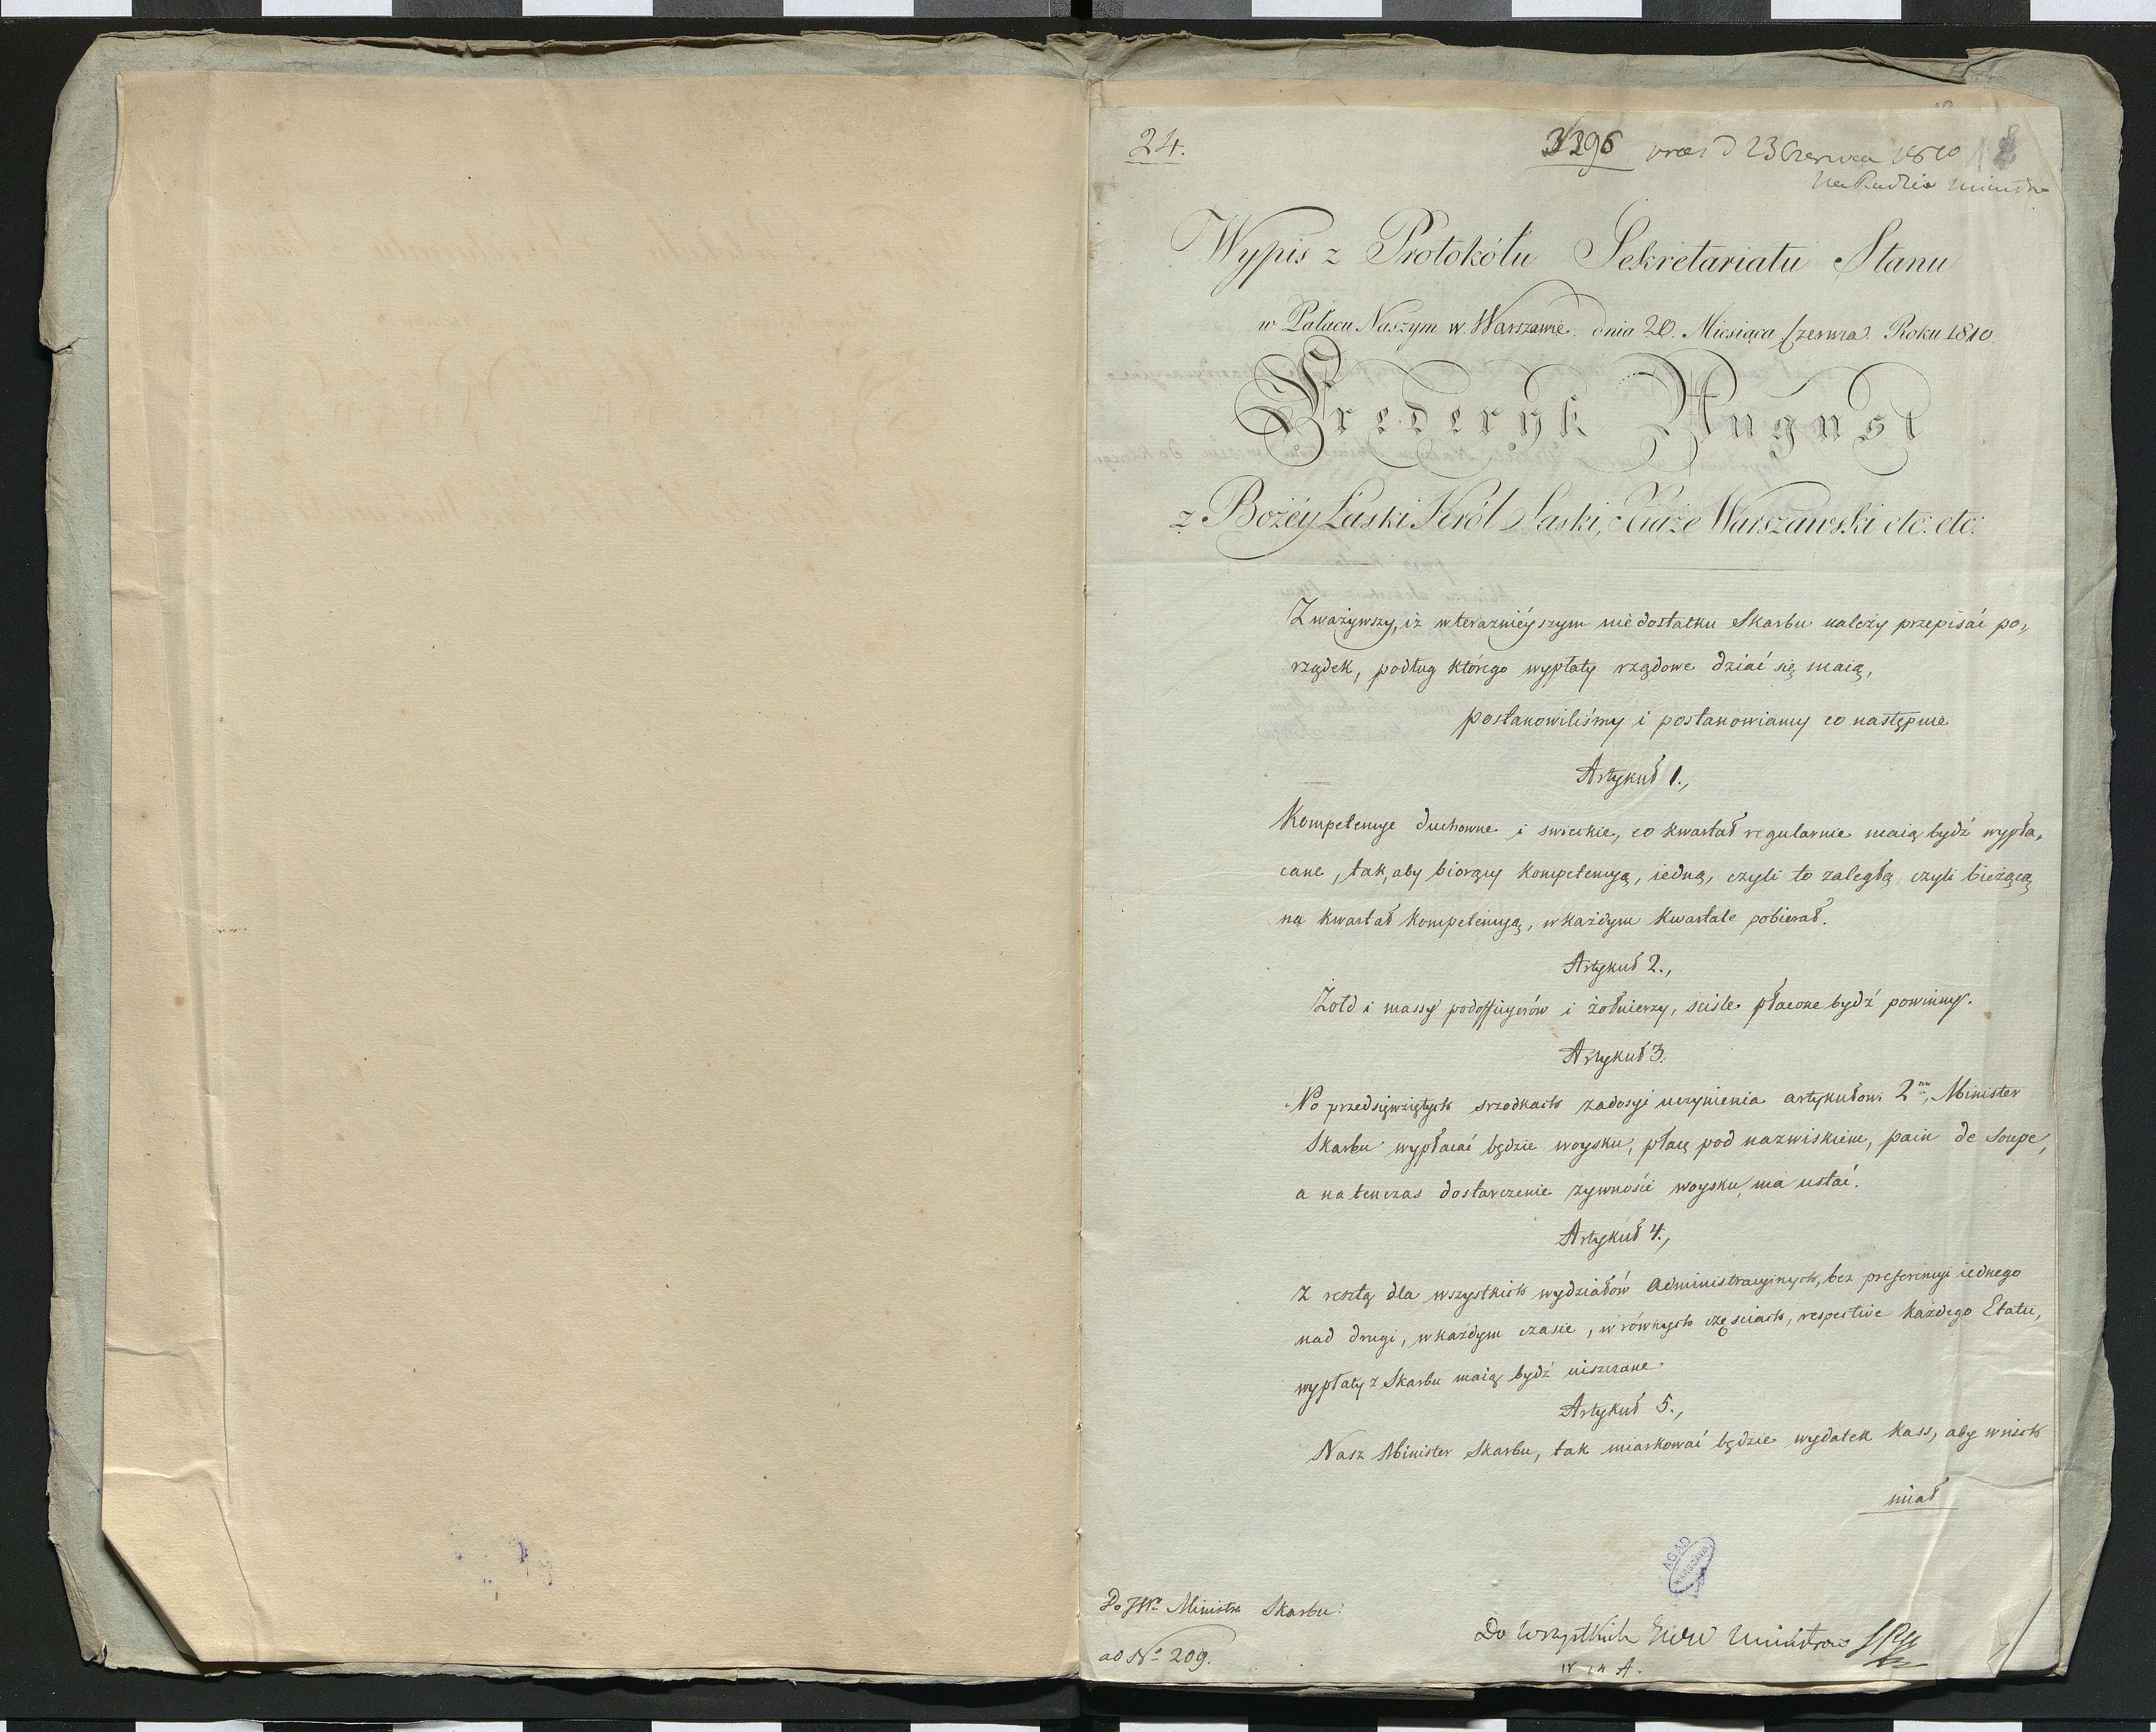 24.
3296 praes d 23 Czerwca 1810 18
Na Radzie Ministr
Wypis z Protokółu Sekretariatu Stanu
w Pałacu Naszym w Warszawie dnia 20. Miesiąca Czerwca. Roku 1810
Frederyk August
z Bożéy Łaski Król Saski, Xiąże Warszawski etc: etc:
Zważywszy, iż w teraznieyszym niedostatku Skarbu należy przepisać po„
rządek, podług którego wypłaty rządowe dziać się maią,
postanowiliśmy i postanowiamy co następuie
Artykuł 1.,
Kompetencye duchowne i swieckie, co kwartał regularnie maią bydź wypła„
cane, tak, aby biorący kompetencyą, iedną, czyli to zaległą czyli bieżącą
na kwartał kompetencyą, w każdym kwartale pobierał.
Artykuł 2.,
Żołd i massy podofficyerów i żołnierzy, sciśle płacone bydź powinny.
Artykuł 3.
Po przedsięwziętych srzodkach zadosyć uczynienia artykułowi 2mu, Minister
Skarbu wypłacać będzie woysku, płacę pod nazwiskiem, pain de soupe,
a na tenczas dostarczenie żywności woysku, ma ustać.
Artykuł 4.,
Z resztą dla wszystkich wydziałów administracyinych, bez preferencyi iednego
nad drugi, w każdym czasie, w równych częsciach, respective każdego Etatu,
wypłaty z Skarbu maią bydź uiszczane
Artykuł 5.,
Nasz Minister Skarbu, tak miarkować będzie wydatek kass, aby w nich
miał
AGAD
WARSZAWA
Do JWo Ministra Skarbu:
ad No 209.
Do Wszystkich JWW Ministrow